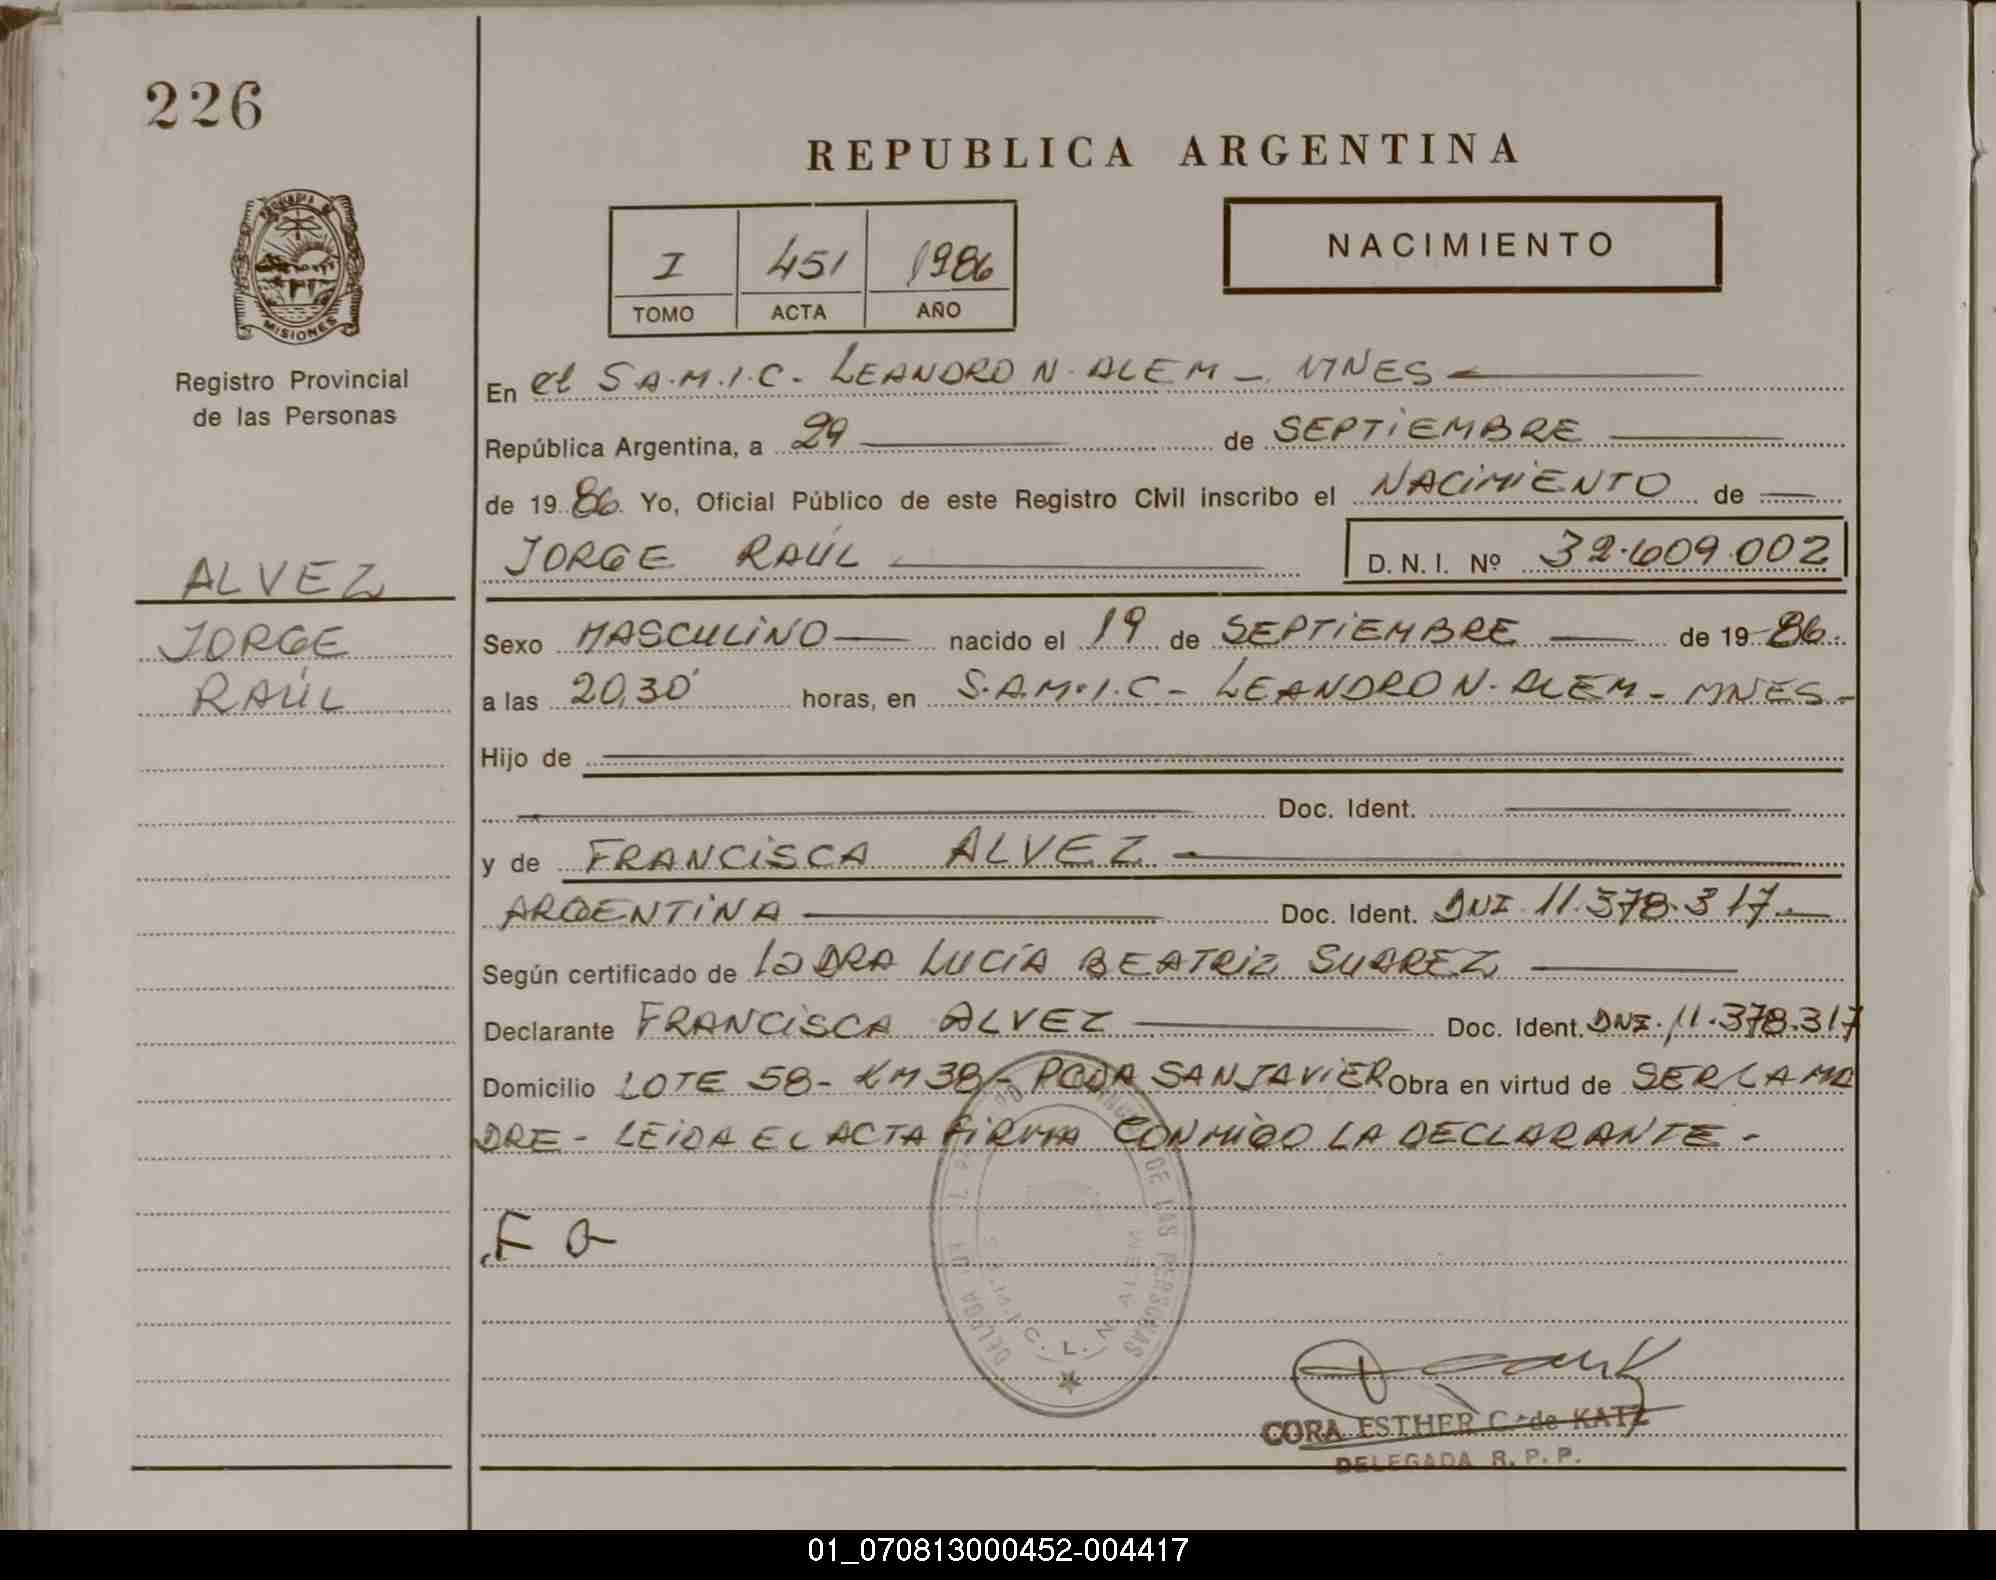 226
REPUBLICA ARGENTINA
I 451 1986
TOMO ACTA AÑO
NACIMIENTO
MISIONES
Registro Provincial
de las Personas
ALVEZ
JORGE
RAÚL
En el S.A.M.I.C- LEANDRO N. ALEM - MNES
República Argentina, a 29 de SEPTIEMBRE
de 1986 Yo, Oficial Público de este Registro Civil inscribo el NACIMIENTO de
JORGE RAÚL D. N. I. Nº 32.609.002
Sexo MASCULINO nacido el 19 de SEPTIEMBRE de 1986.
a las 20,30' horas, en S.A.M.I.C- LEANDRO N. ALEM - MNES-
Hijo de
Doc. Ident.
y de FRANCISCA ALVEZ
ARGENTINA Doc. Ident. DNI 11.378.317
Según certificado de la DRA LUCÍA BEATRIZ SUAREZ
Declarante FRANCISCA ALVEZ Doc. Ident. DNI. 11.378.317
Domicilio LOTE 58- KM 38- PCDA SAN JAVIER Obra en virtud de SER LA MA
DRE - LEIDA EL ACTA FIRMA CONMIGO LA DECLARANTE -
F a
DE LAS PERSONAS
L. N. ALEM
CORA ESTHER C. de KATZ
DELEGADA R. P. P.
01_070813000452-004417